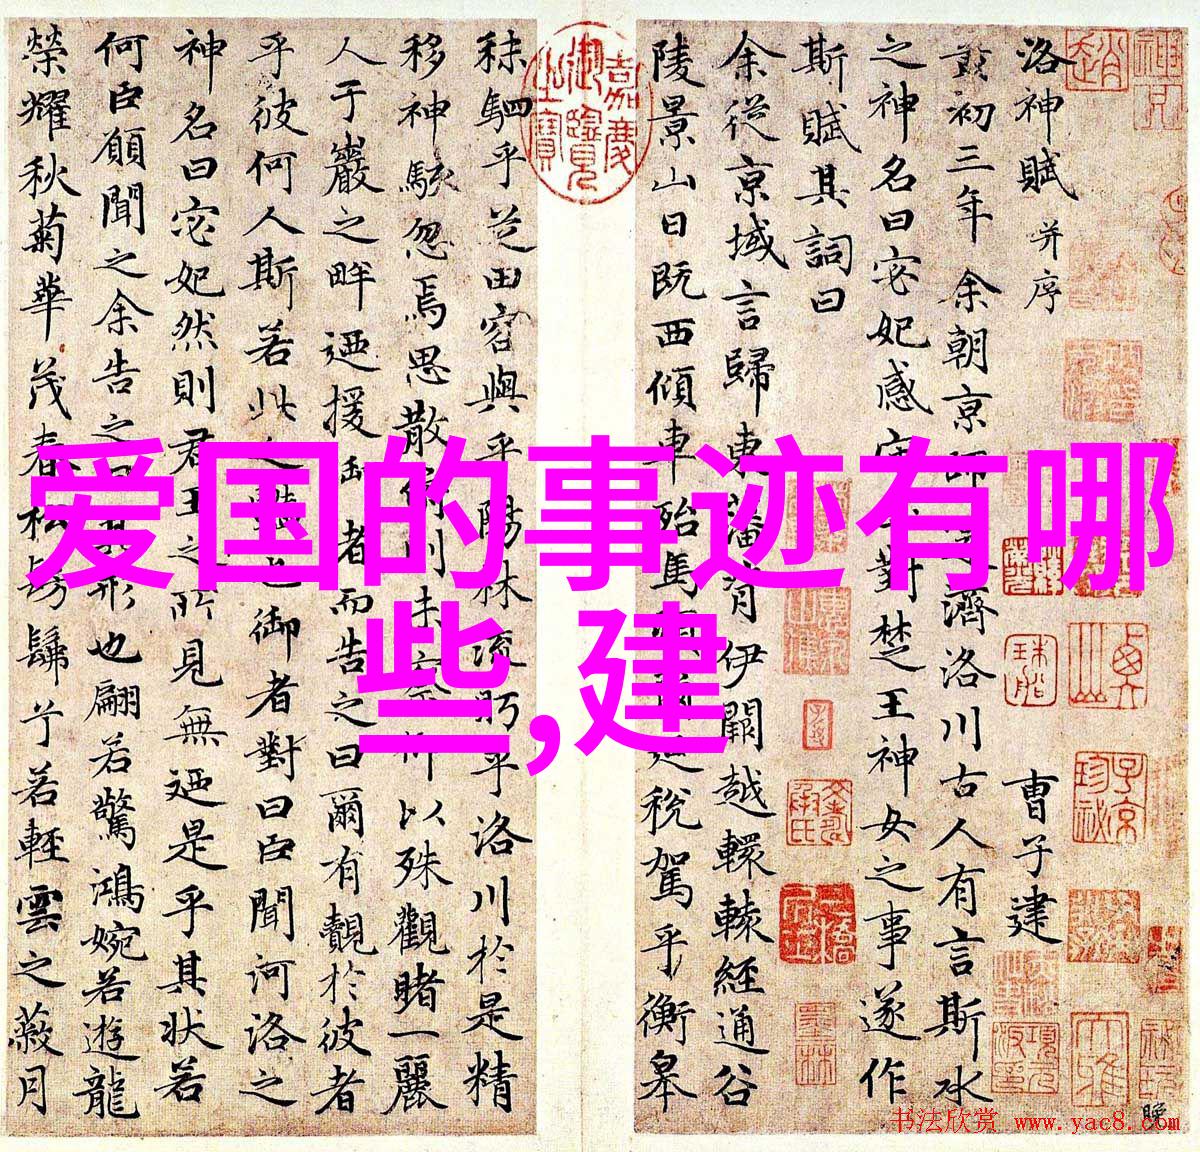 洛神賦 并序
曹子建
黃初三年余朝京師還濟洛川古人有言斯水
之神名曰宓妃感宋玉對楚王神女之事遂作
斯賦其詞曰
余從京域言歸東藩背伊闕越轘轅經通谷
陵景山日既西傾車殆馬煩爾迺稅駕乎衡皋
秣駟乎芝田容與乎陽林流眄乎洛川於是精
移神駭忽焉思散俯則未察仰以殊觀睹一麗
人于巖之畔迺援御者而告之曰爾有覿於彼者
乎彼何人斯若此之豔也御者對曰臣聞河洛之
神名曰宓妃然則君王之所見無迺是乎其狀若
何臣願聞之余告之曰其形也翩若驚鴻婉若遊龍
榮耀秋菊華茂春松髣髴兮若輕雲之蔽月
嘉慶御覽之寶
爱国的事迹有哪
些,建
书法欣赏 www.yac8.com